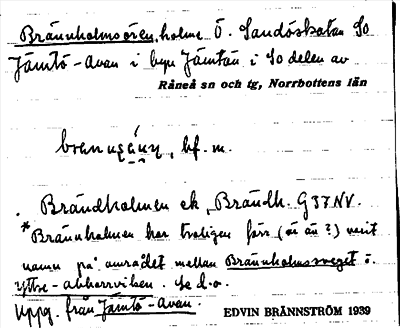 Brännholmsören, holme Ö. Sandöskatan SO
Jämtö-Avan i byn Jämtön i SO delen av
Råneå sn och tg, Norrbottens län
bf. m.
Brändholmen ek, Brändh. G37NV.
*Brännholmen har troligen förr (är än?) varit
namn på området mellan Brännholmssveget o.
Yttre-abborrviken. Se d.o.
Uppg. från Jämtö-Avan.
EDVIN BRÄNNSTRÖM 1939